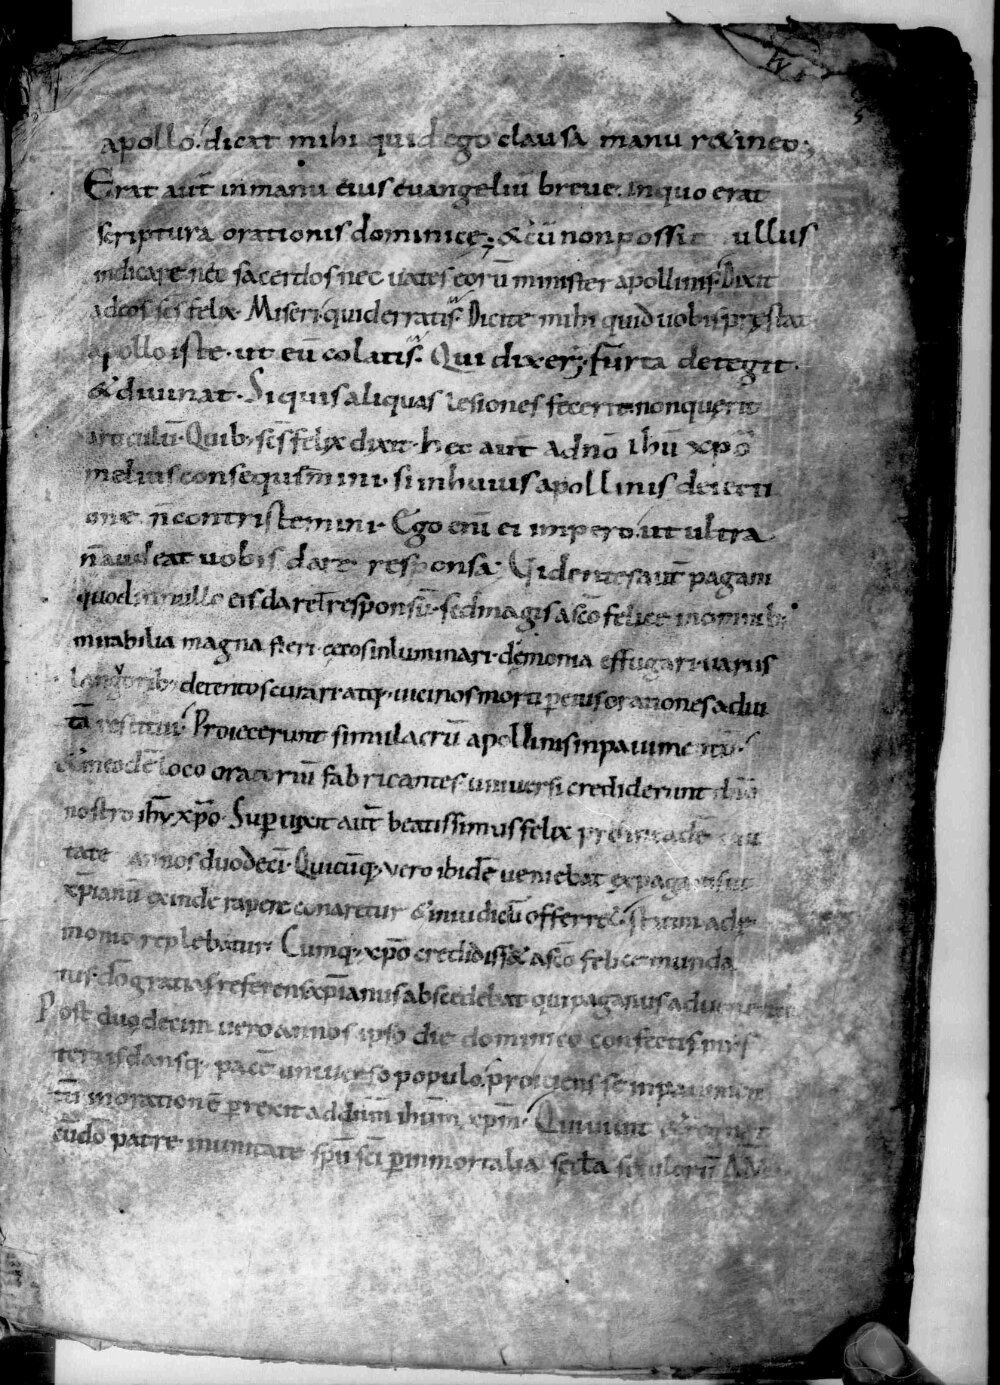 apollo. dicat mihi quid ego clausa manu r&ineo;
Erat aut̄ inmanu eius euangeliū breue. inquo erat
scriptura orationis dominicę; &cū nonpossit ullus
indicare nec sacerdos nec uates eorū minister apollinis. Dixit
adeos sc̄s felix. Miseri quid erratis. Dicite mihi quid uobis pręstat
apollo iste. ut eū colatis. Qui dixer̄; furta detegit.
& diuinat. Si quis aliquas lesiones fecerit nonquerit
articulū. Quib; sc̄s felix dixit. hec aut̄ adnō ihū xp̄o
melius consequimini. si inhuius apollinis deiecti
one. n̄ contristemini. Ego eni ei impero. ut ultra
n̄ audeat uobis dare responsa; Uidentes aut̄ pagani
quod nullo eis daret̄ responsū. sed magis asc̄o felice inomnib;
mirabilia magna fieri. cecos inluminari. dęmonia effugari. uariis
languorib; detentos curari. atq; uicinos morti p eius orationes adui
tā restitui. Proiecerunt simulacrū apollinis inpauimentū.
& ineodē loco oratoriū fabricantes. uniuersi crediderunt dn̄o
nostro ihū xp̄o. Superuixit aut̄ beatissimus felix ciui
tate annos duodeci. Quicūq; uero ibidē ueniebat expaganis ut
xp̄ianū exinde rapere conaretur & iniudiciū offerre. statim adę
monio replebatur. Cumq; xp̄o credidiss& asc̄o felice munda
tus. dō gratias referens xp̄ianus abscedebat qui paganus aduenerat
Post duodecim uero annos ipso die dominico confectis mis
teriis dansq; pacē uniuerso populo. proiciens se inpauimen
tū inorationē perrexit addnm̄ ihm̄ xp̄m. Qui uiuit & regnat
cūdō patre inunitate sp̄u sc̄i p inmortalia sęcla sęculorū AM